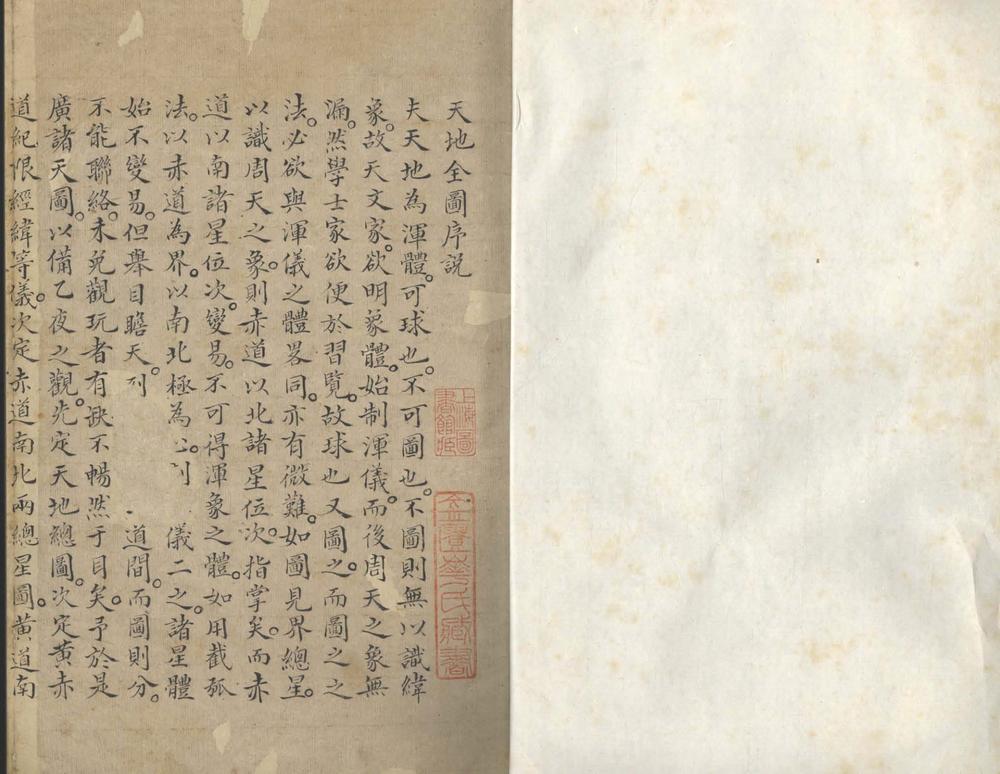 天地全圖序説
夫天地為渾體。可球也。不可圖也。不圖則無以識緯
象。故天文家。欲明象體。始制渾儀。而後周天之象無
漏。然學士家欲便於習覽。故球也又圖之。而圖之之
法。必欲與渾儀之體畧同。亦有微難。如圖見界總星。
以識周天之象。則赤道以北諸星位次。指掌矣。而赤
道以南諸星位次。變易。不可得渾象之體。如用截弧
法。以赤道為界。以南北極為心。儀二之。諸星體
始不變易。但舉目瞻天。道間。而圖則分。
不能聯絡。未免觀玩者有缺不暢然于目矣。予於是
廣諸天圖。以備乙夜之觀。先定天地總圖。次定黃赤
道紀限經緯等儀。次定赤道南北兩總星圖。黃道南
上海圖書館藏